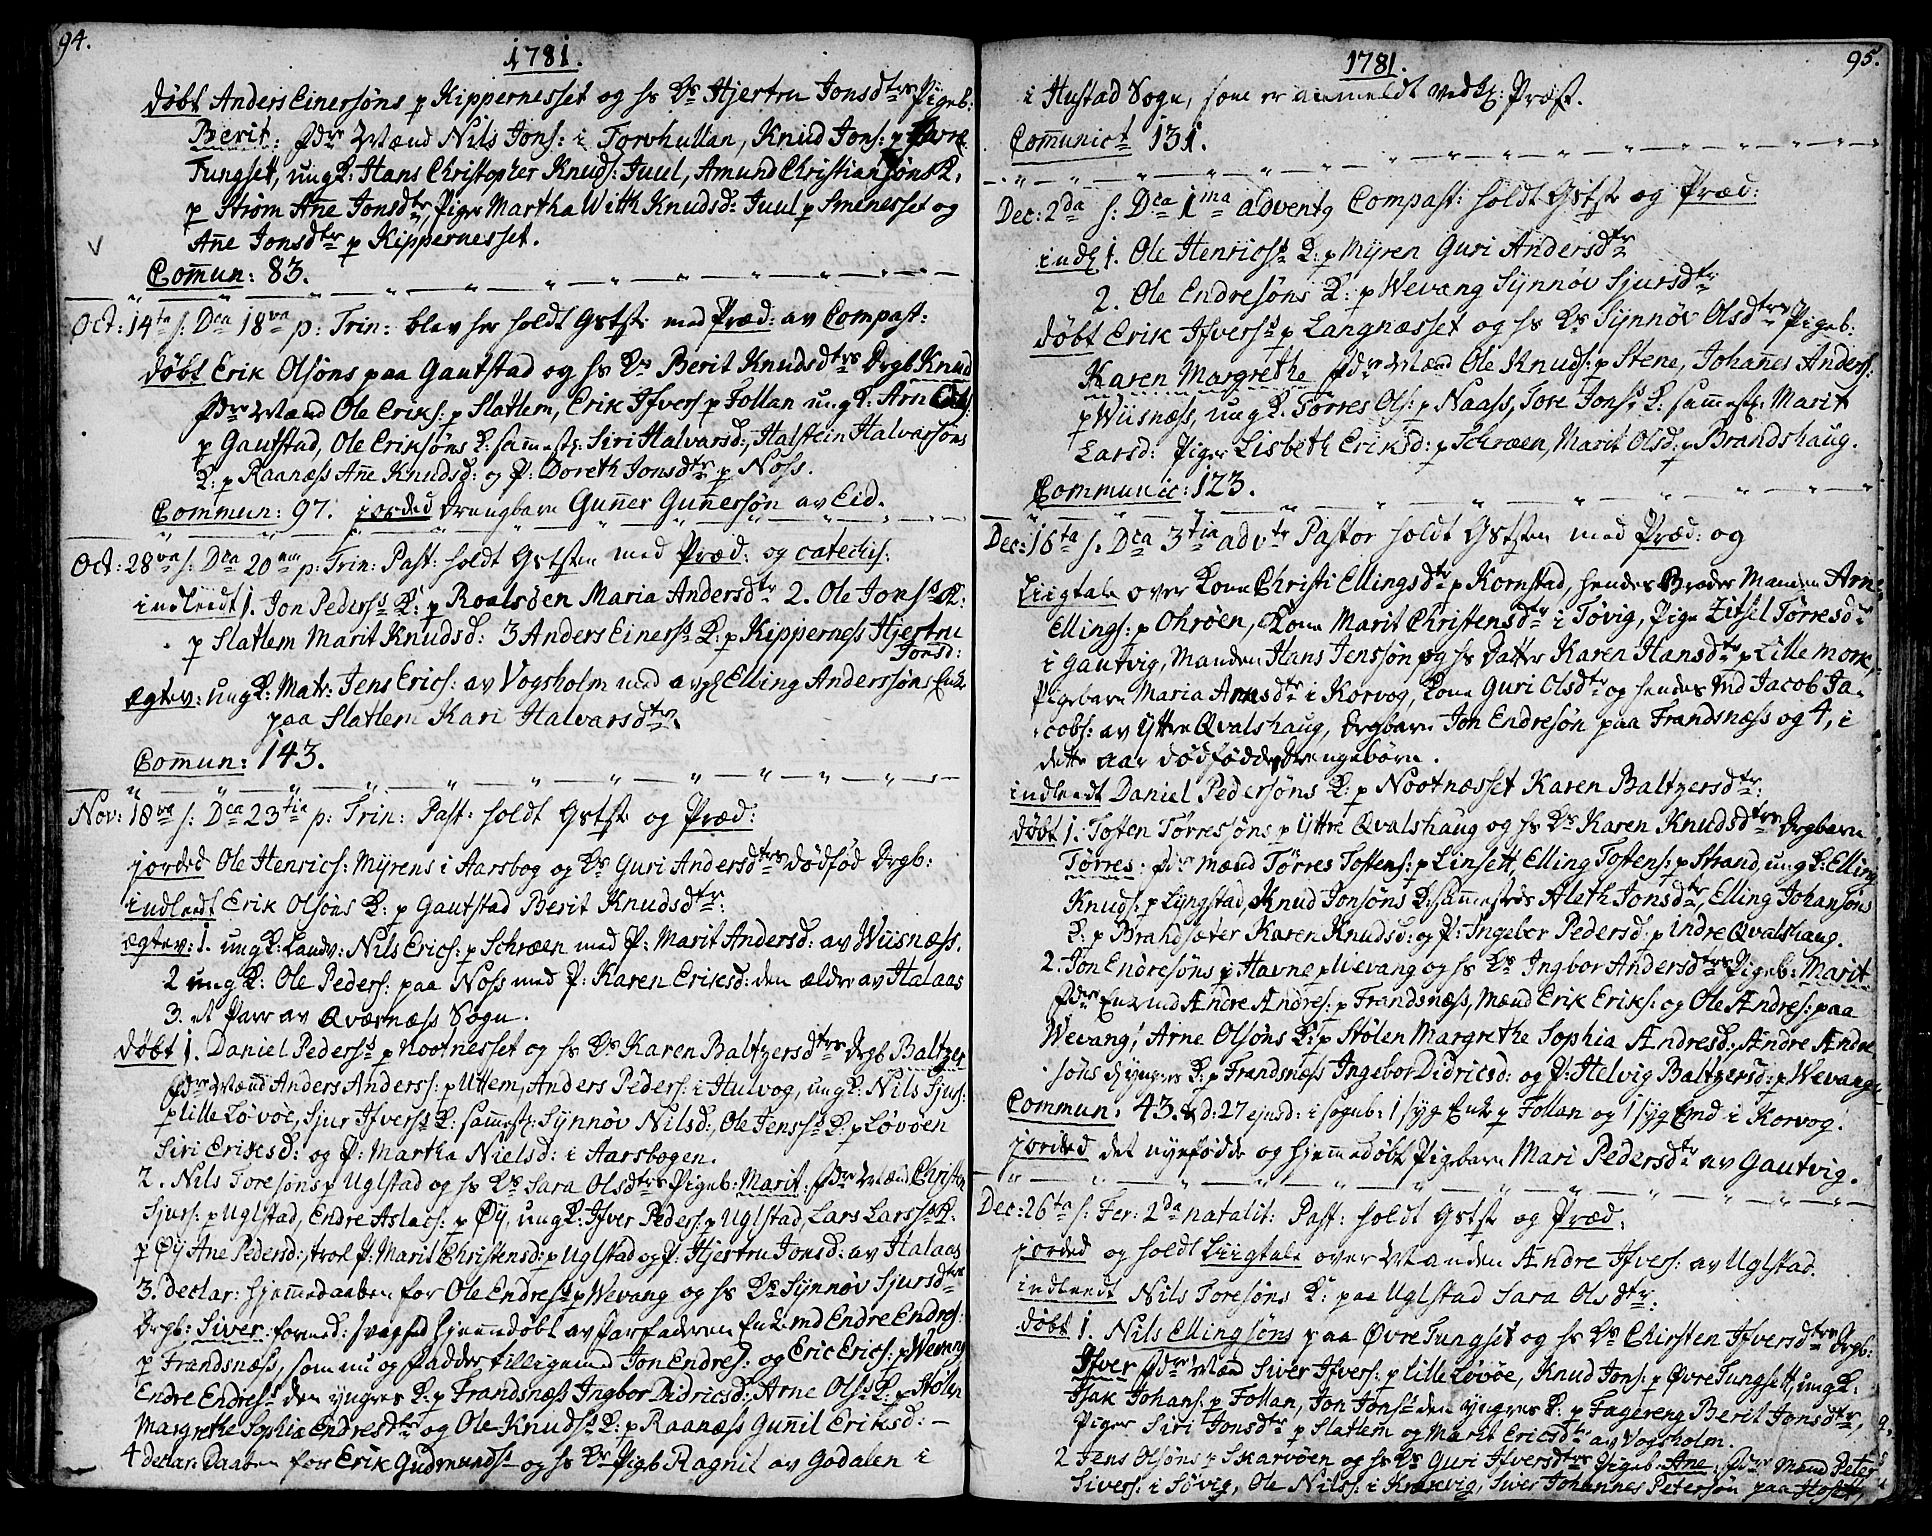 94.
1781.
døbt Anders Einersøns p Kippernesset og hs Ks Hjertru Jonsdtrs Pigeb:
Berit: fdrs Mænd Nils Jons: i Torvhullan, Knud Jons: p Øvre
Tungset, ung K: Hans Christopher Knuds: Juul, Amund Christiansøns K:
p Strøm Ane Jonsdtr, Piger Martha With Knudsd: Juul p Smenesset og
Ane Jonsdtr p Kippernesset.
Comun: 83.
Oct: 14ta s: Dca 18va p: Trin: blev her holdt Gstste med Præd: av Compast:
døbt Erik Olsøns paa Gautstad og hs Ks Berit Knudsdtrs Drgb Knud
fdrs Mænd Ole Eriks: p Slatlem, Erik Ifvers: p Follan ung K: Arn
p Gautstad, Ole Eriksøns K: samestz: Siri Halvarsd:, Halstein Halvarsøns
K: p Raanæss Ane Knudsd: og P: Doreth Jonsdtr p Noss.
Commun: 97. jorded Drengbarn Guner Gunersøn av Eid.
Oct: 28va s: Dca 20ma p: Trin: Past: holdt Gststen med Præd: og catechis:
indleedt 1. Jon Pederss K: p Roalsøen Maria Andersdtr 2. Ole Jonss K:
p Slatlem Marit Knudsd: 3 Anders Einerss K: p Kipperness Hjertru
Jonsd:
Ægtev: ung K: Matr: Jens Erics: av Vogsholm med Elling Anderssøns Enke
paa Slatlem Kari Halvarsdtr.
Comun: 143.
Nov: 18va s: Dca 23tia p: Trin: Past: holdt Gstste og Præd:
jorded Ole Henrics: Myrens i Aarsbog og Ks Guri Andersdtrs dødfød Drgb:
indleedt Erik Olsøns K: p Gautstad Berit Knudsdtr:
ægtev: 1. ung K: Landv: Nils Erics: p Schrøen med P: Marit Andersd: av Wiisnæss.
2 ung K: Ole Peders: paa Noss med P: Karen Eriksd: den ældre av Halaas
3. et Parr av Qværnæss Sogn.
døbt 1. Daniel Pederss p Nootnesset og hs Ks Karen Baltzersdtrs Drgb Baltzer
fdrs Mænd Anders Anderss: p Uttem, Anders Peders: i Hulvog, ung K: Nils Sjurs:
p lille Løvøe, Sjur Ifverss K: samestz: Synnøv Nilsd:, Ole Jenss K: p Løvøen
Siri Eriksd: og P: Martha Nielsd: i Aarsbogen.
2. Nils Toresøns p Uglstad og hs Ks Sara Olsdtrs Pigeb: Marit: fdrs Mænd Christen
Sjurs: p Uglstad, Endre Aslacs: p Øÿ, ung K: Ifver Peders: p Uglstad, Lars Larss K:
p Øÿ Ane Pedersd:, trol: P: Marit Christensd: p Uglstad og P: Hjertru Jonsd: av Halaas
3. declar: hjemmedaaben for Ole Endress p Wevang og hs Ks Synnøv Sjursdtrs
Drgb: Siver: formed: svaghed hjemmedøbt av farfaderen Enkemd Endre Endres:
p Frandsnæss, som nu og fadder, tilligemed Jon Endres: og Eric Erics: p Wevang
Endre Endress den yngres K: p Frandsnæss Ingbor Didricsd:, Arne Olss K: p Stølen
Margrethe Sophia Endresdtr og Ole Knudss K: p Raanæss Gunil Eriksd: —
4 declar: Daaben for Erik Gudmunds: og hs Ks Pigb Ragnil av Godalen i
1781.
95.
i Hustad Sogn, som er anmeldt ved Præst.
Comunict 131.
Dec: 2da s: Dca 1ma adventq Compast: holdt Gstste og Præd:
indl 1. Ole Henricss K: p Myren Guri Andersdtr
2. Ole Endresøns K: p Wevang Synnøv Sjursdtr
døbt Erik Ifverss p Langnæsset og hs Ks Synnøv Olsdtrs Pigeb:
Karen Margrethe fdrs Mænd Ole Knuds: p Stene, Johanes Anders:
p Wiisnæss, ung K: Tørres Ols: p Naass, Tore Jonss K: samestz: Marit
Larsd: Piger Lisbeth Eriksd: p Schrøen, Marit Olsd: p Brandshaug.
Communic: 123.
Dec: 16ta s: Dca 3tia advtr Pastor holdt Gststen med Præd: og
Liigtale over Kone Christi Ellingsdtr p Kornstad, hendes Broder Manden Arne
Ellings: p Ohrøen, Kone Marit Christensdtr i Tøvig, Pige Zitsel Tørresdtr
i Gautvig, Manden Hans Jenssøn og hs Datter Karen Hansdtr p Lille mork,
Pigebarn Maria Arnsdtr i Korvog, Kone Guri Olsdtr og hendes Md Jacob Ja-
cobs: av Yttre Qvalshaug, Drgbarn Jon Endresøn paa Frandsnæss og 4, i
dette aar dødfødde Drengebørn.
indleedt Daniel Pedersøns K: p Nootnæsset Karen Baltzersdtr:
døbt 1. Tosten Tørresøns p Yttre Qvalshaug og hs Ks Karen Knudsdtrs Drgbarn
Tørres: fdrs Mænd Tørres Tostens: p Linsett, Elling Tostens: p Strand, ung K: Elling
Knuds: p Lyngstad, Knud Jonsøns K: sammestæds Aleth Jonsdtr, Elling Johansøns
K: p Brandsæter Karen Knudsd: og P: Ingeber Pedersd: p Indre Qvalshaug.
2. Jon Endresøns p Havne p Wevang og hs Ks Ingbor Andersdtrs Pigeb: Marit
fdrs Enkemd Andre Andres: p Frandsnæss, Mænd Erik Eriks: og Ole Andres: paa
Wevang, Arne Olsøns K: p Stølen Margrethe Sophia Andresd:, Andre Andre-
søns d: yngres K: p Frandsnæss Ingebor Didricsd: og P: Helvig Baltzersd: p Wevang.
Commun: 43. & d: 27 ejusd: i sogneb: 1 syg Enke p Follan og 1 syg Emd i Korvog.
jorded det nyefødde og hjemmedøbt Pigebarn Mari Pedersdtr av Gautvig.
Dec: 26ta s: Fer: 2da natalit: Past: holdt Gstste og Præd:
jorded og holdt Liigtale over Manden Andre Ifvers: av Uglstad.
indleedt Nils Toresøns K: paa Uglstad Sara Olsdtr:
døbt 1. Nils Ellingsøns paa Øvre Tungset og hs Ks Chirsten Ifversdtrs Drgb:
Ifver fdrs Mænd Siver Ifvers: p Lille Løvøe, Knud Jons: p Øvre Tungsett, ung K:
Isak Johans: p Follan, Jon Jonss den yngres K: p Fagereng Berit Jonsdtr,
Piger Siri Jonsdtr p Slatlem og Marit Ericsdtr av Vogsholm.
2 Jens Olsøns p Skarvøen og hs Ks Guri Ifversdtrs Pigeb: Ane: fdrs Mænd Peter
Sivers: i Søvig, Ole Nils: i Krækvig, Siver Johannes Petersøn paa